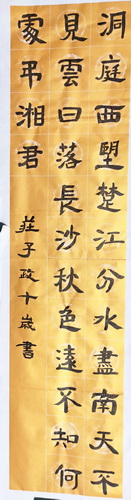 洞庭西望楚江分水盡南天不
見雲日落長沙秋色遠不知何
處弔湘君
莊子政十歲書